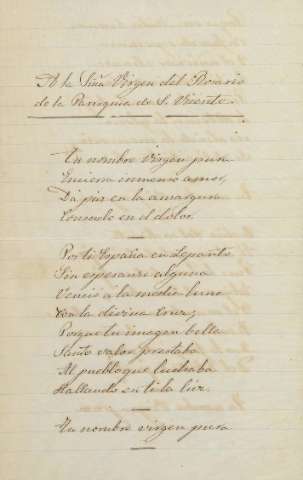 A la Sma Virgen del Rosario
de la Parroquia de S. Vicente.
Tu nombre Virgen pura
Encierra inmenso amor,
Da paz en la amargura
Consuelo en el dolor.
Por ti España en Lepanto
Sin esperanza alguna
Venció á la media luna
Con la divina cruz;
Porque tu imagen bella
Santo valor prestaba
Al pueblo que luchaba
Hallando en ti la luz.
Tu nombre virgen pura